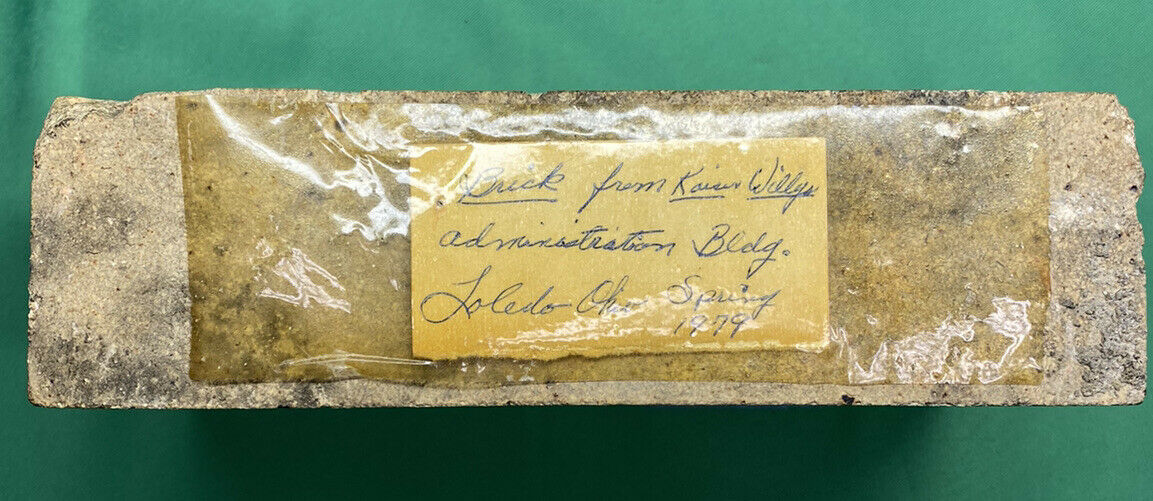 Brick from Kaiser Willys
administration Bldg.
Toledo Ohio Spring
1979